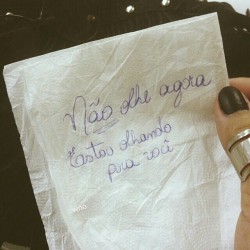 Não olhe agora
Estou olhando
para você